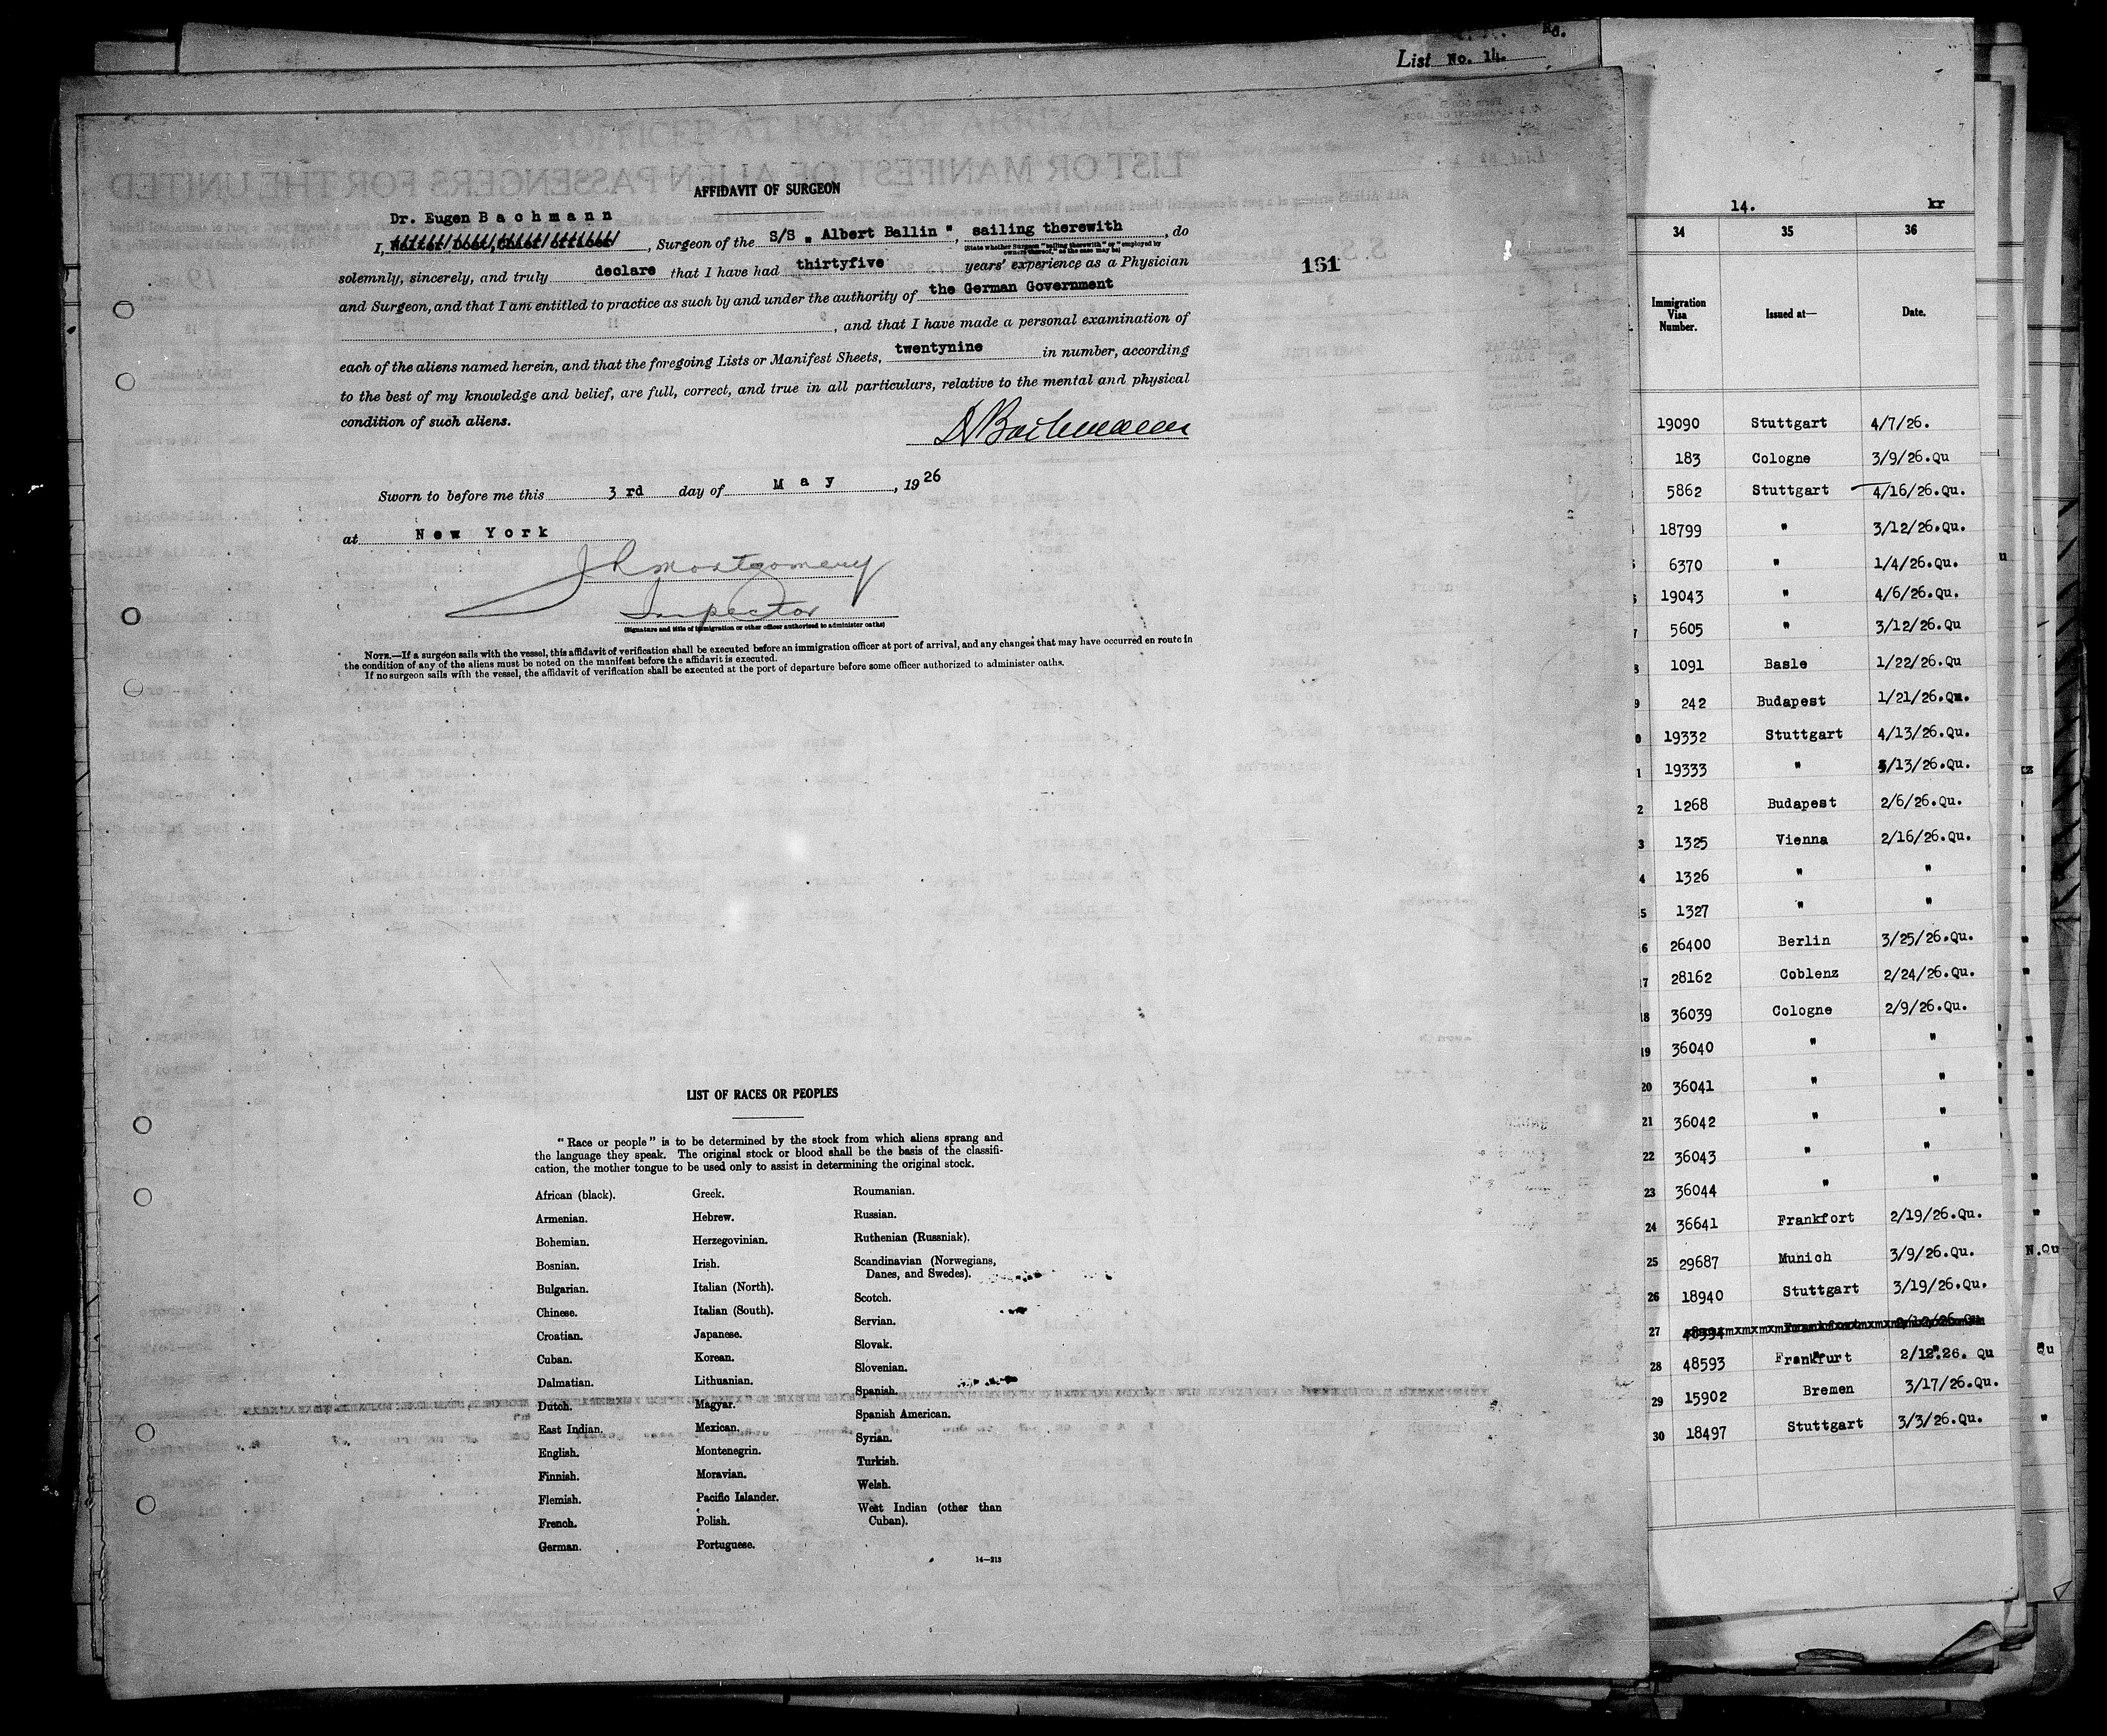 List No. 14.
AFFIDAVIT OF SURGEON
Dr. Eugen Bachmann
I, Walter Dost, Chief Officer, Surgeon of the S/S „ Albert Ballin ", sailing therewith, do
(State whether Surgeon "sailing therewith" or "employed by
owners thereof," as the case may be)
solemnly, sincerely, and truly declare that I have had thirtyfive years' experience as a Physician
and Surgeon, and that I am entitled to practice as such by and under the authority of the German Government
, and that I have made a personal examination of
each of the aliens named herein, and that the foregoing Lists or Manifest Sheets, twentynine in number, according
to the best of my knowledge and belief, are full, correct, and true in all particulars, relative to the mental and physical
condition of such aliens.
Dr Bachmann
Sworn to before me this 3 rd day of May, 1926
at New York
J R Montgomery
Inspector
(Signature and title of immigration or other officer authorized to administer oaths)
NOTE.—If a surgeon sails with the vessel, this affidavit of verification shall be executed before an immigration officer at port of arrival, and any changes that may have occurred en route in
the condition of any of the aliens must be noted on the manifest before the affidavit is executed.
If no surgeon sails with the vessel, the affidavit of verification shall be executed at the port of departure before some officer authorized to administer oaths.
161
LIST OF RACES OR PEOPLES
"Race or people" is to be determined by the stock from which aliens sprang and
the language they speak. The original stock or blood shall be the basis of the classifi-
cation, the mother tongue to be used only to assist in determining the original stock.
African (black).
Armenian.
Bohemian.
Bosnian.
Bulgarian.
Chinese.
Croatian.
Cuban.
Dalmatian.
Dutch.
East Indian.
English.
Finnish.
Flemish.
French.
German.
Greek.
Hebrew.
Herzegovinian.
Irish.
Italian (North).
Italian (South).
Japanese.
Korean.
Lithuanian.
Magyar.
Mexican.
Montenegrin.
Moravian.
Pacific Islander.
Polish.
Portuguese.
Roumanian.
Russian.
Ruthenian (Russniak).
Scandinavian (Norwegians,
Danes, and Swedes).
Scotch.
Servian.
Slovak.
Slovenian.
Spanish.
Spanish American.
Syrian.
Turkish.
Welsh.
West Indian (other than
Cuban).
14—213
14. kr
34 35 36
Immigration Visa Number. Issued at— Date.
19090 Stuttgart 4/7/26.
183 Cologne 3/9/26.Qu
5862 Stuttgart 4/16/26.Qu.
18799 " 3/12/26.Qu.
6370 " 1/4/26.Qu.
19043 " 4/6/26.Qu.
7 5605 " 3/12/26.Qu
8 1091 Basle 1/22/26.Qu
9 242 Budapest 1/21/26.Qu.
0 19332 Stuttgart 4/13/26.Qu.
1 19333 " /13/26.Qu.
2 1268 Budapest 2/6/26.Qu.
3 1325 Vienna 2/16/26.Qu.
4 1326 " "
5 1327 " "
6 26400 Berlin 3/25/26.Qu.
17 28162 Coblenz 2/24/26.Qu.
18 36039 Cologne 2/9/26.Qu.
19 36040 " "
20 36041 " "
21 36042 " "
22 36043 " "
23 36044 " "
24 36641 Frankfort 2/19/26.Qu.
25 29687 Munich 3/9/26.Qu. N.Qu
26 18940 Stuttgart 3/19/26.Qu.
27 48594 Frankfort 2/12/26 Qu
28 48593 Frankfurt 2/12.26. Qu Qu
29 15902 Bremen 3/17/26.Qu.
30 18497 Stuttgart 3/3/26.Qu.